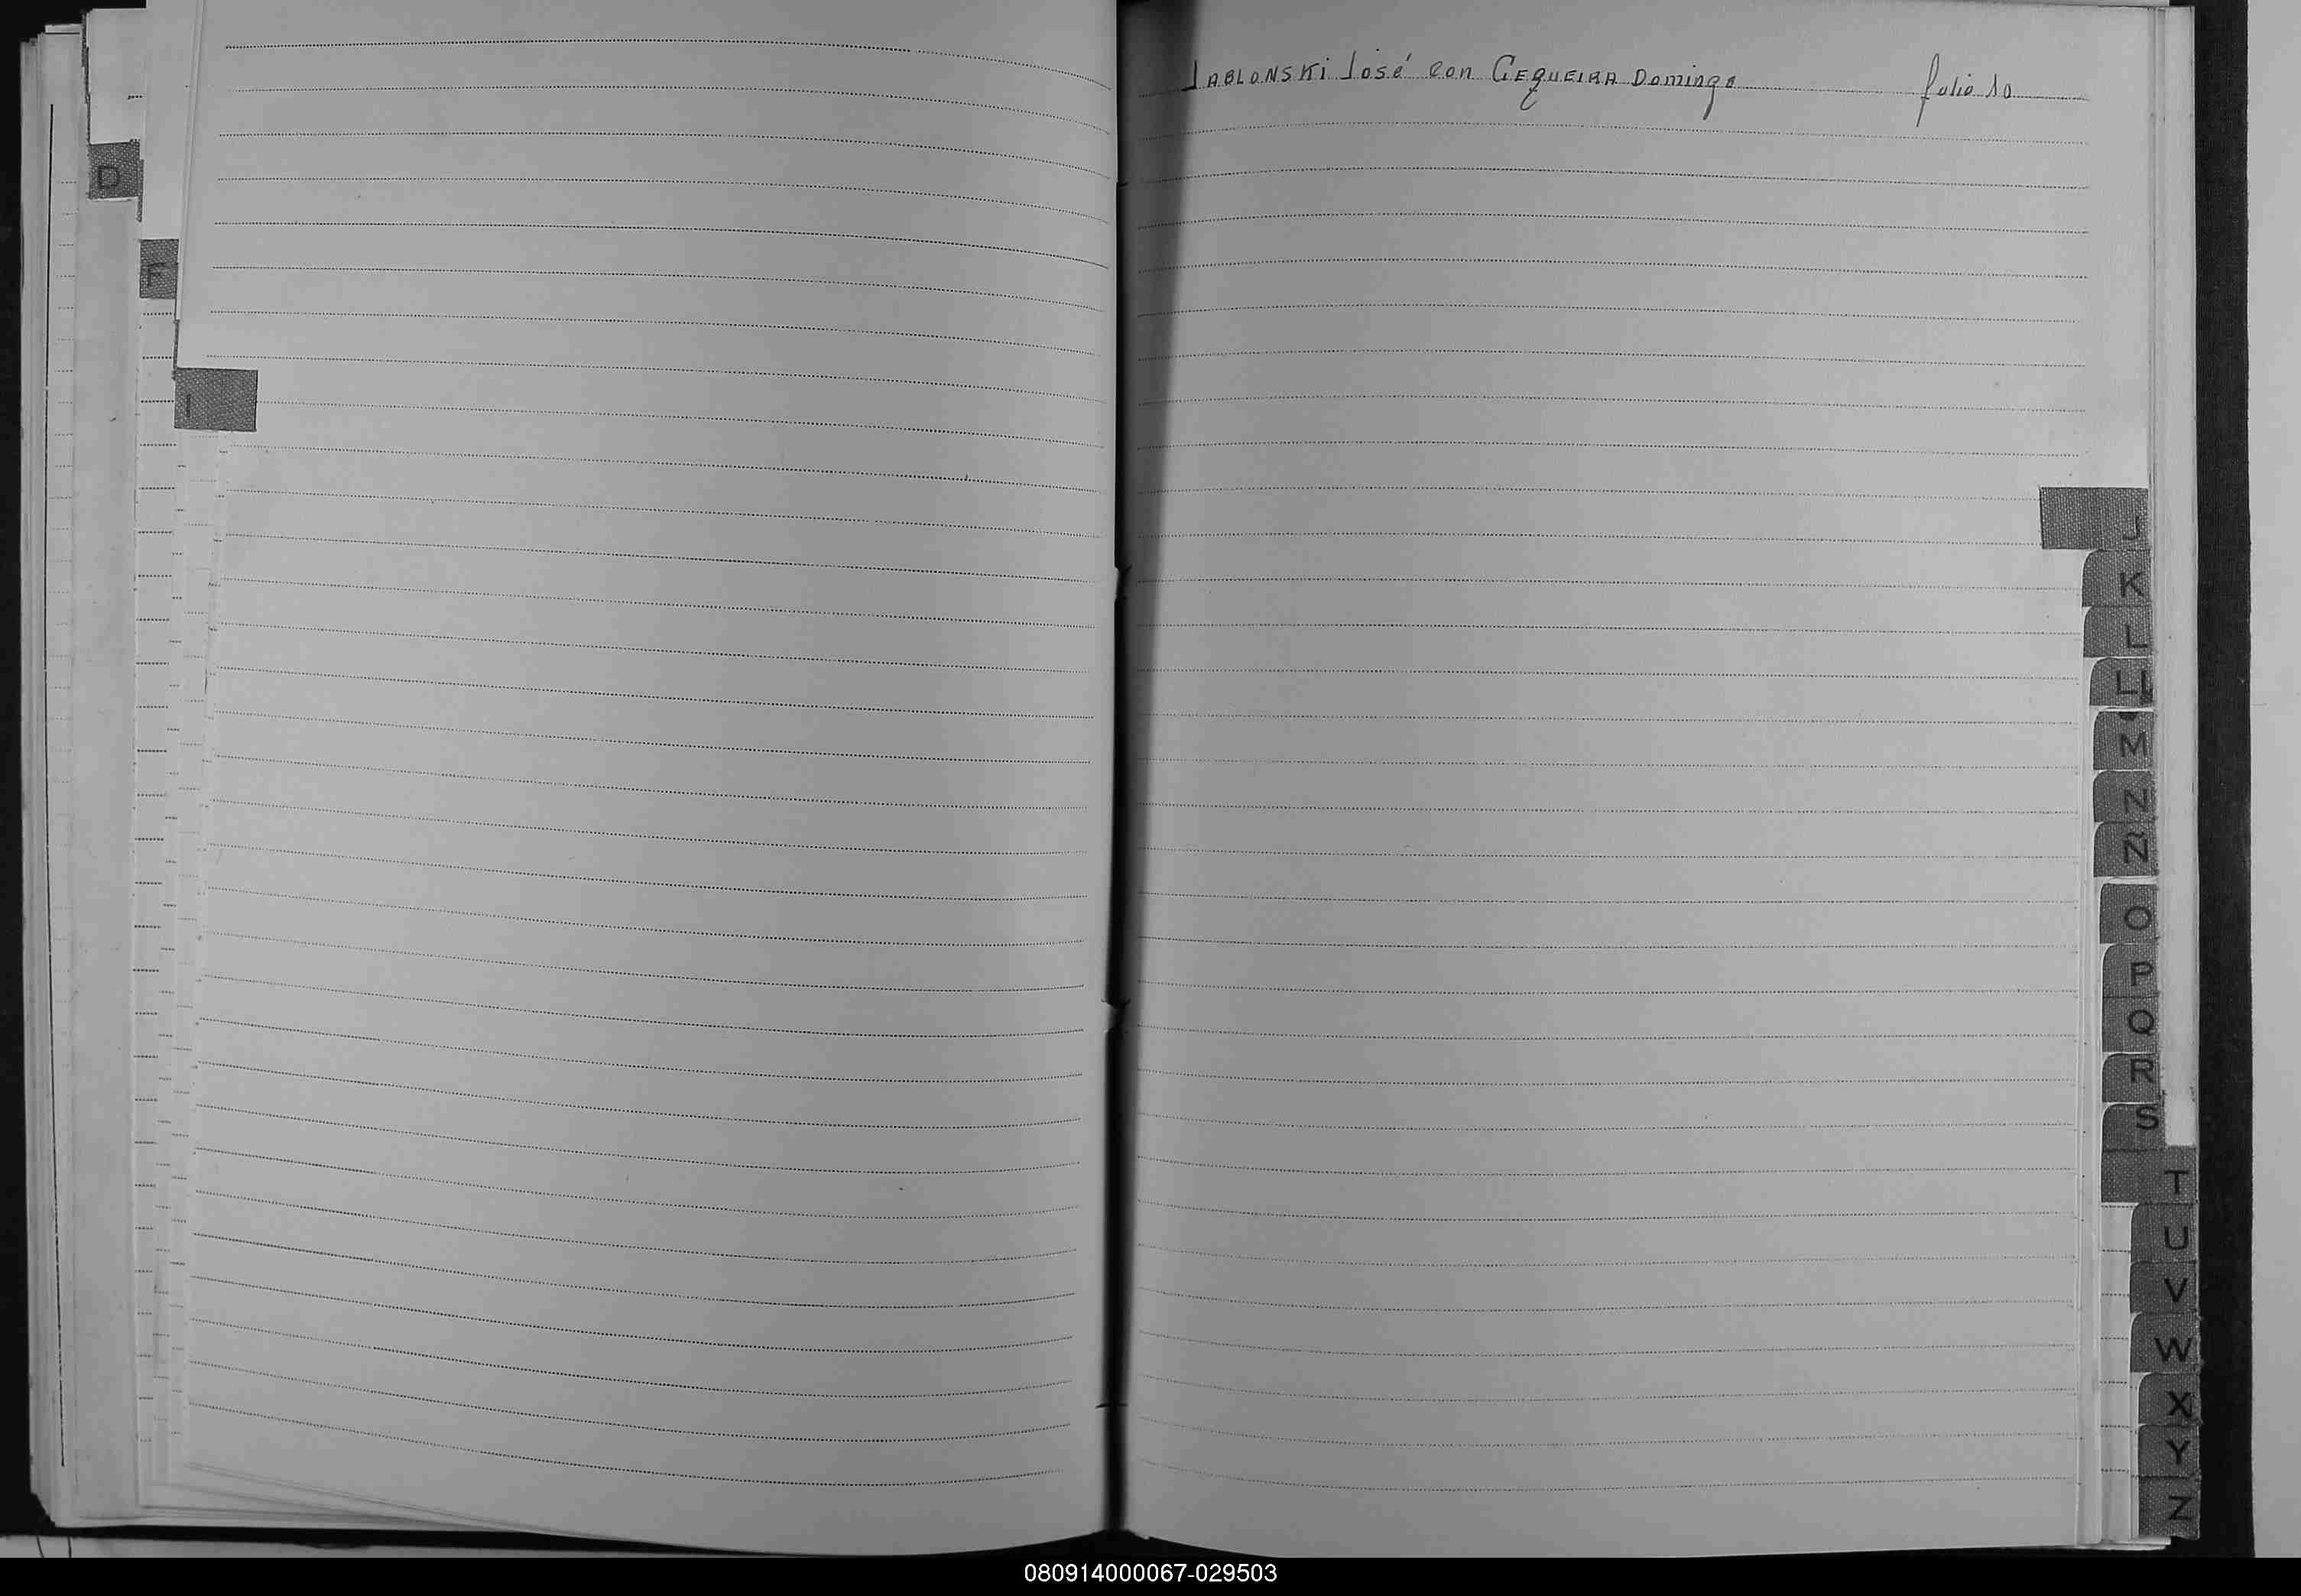 JABLONSKI José con CEQUEIRA Domingo folio 10
D
F
I
J
K
L
LL
M
N
Ñ
O
P
Q
R
S
T
U
V
W
X
Y
Z
080914000067-029503